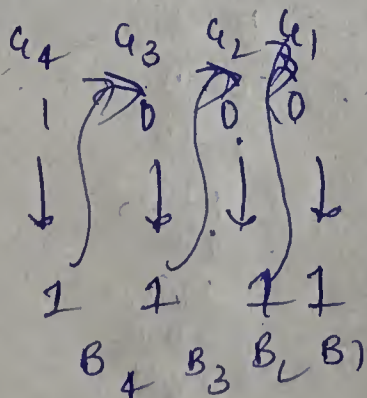 G4 G3 G2 G1
1 0 0 0
1 1 1 1
B4 B3 B2 B1